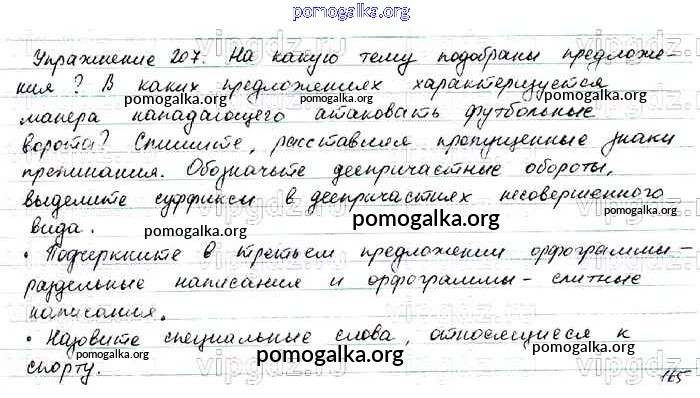 pomogalka.org
Упражнение 207. На какую тему подобраны предложе-
ния? В каких предложениях характеризуется
pomogalka.org pomogalka.org
манера нападающего атаковать футбольные
pomogalka.org
ворота? Спишите, расставляя пропущенные знаки
препинания. Обозначьте деепричастные обороты,
выделите суффиксы в деепричастиях несовершенного
вида.
pomogalka.org pomogalka.org
• Подчеркните в третьем предложении орфограммы-
раздельные написания и орфограммы - слитные
написания.
pomogalka.org
• Назовите специальные слова, относящиеся к
спорту.
pomogalka.org pomogalka.org pomogalka.org
165